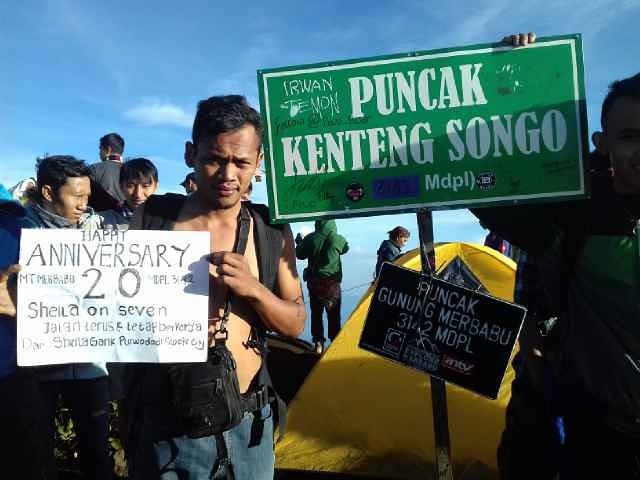 HAPPY
ANNIVERSARY
MT MERBABU 20 MDPL 3142
Sheila on seven
Jalan terus & tetap berkarya
Dari Sheila Gank Purwodadi
IRWAN
TEMON
PUNCAK
KENTENG SONGO
Mdpl)
PUNCAK
GUNUNG MERBABU
3142 MDPL
antv